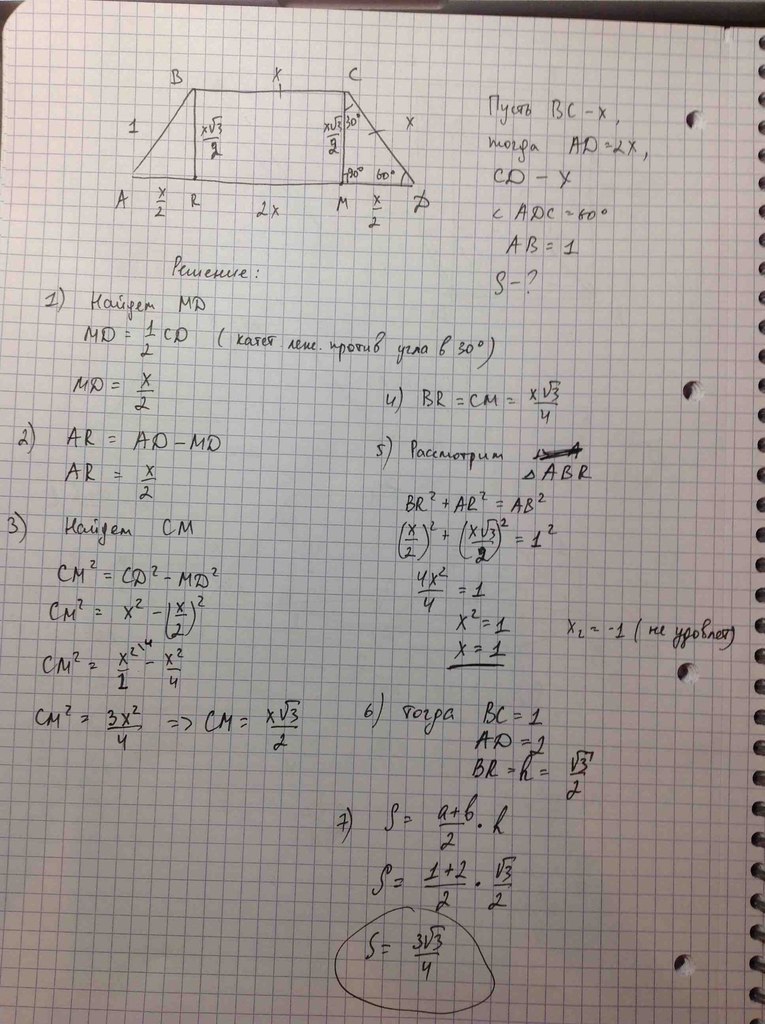 B x C
1 x√3/2 x√3/2 30° x
90° 60°
A x/2 R 2x M x/2 D
Пусть BC - x,
тогда AD = 2x,
CD - x
< ADC = 60°
AB = 1
S - ?
Решение:
1) Найдем MD
MD = 1/2 CD (катет леж. против угла в 30°)
MD = x/2
2) AR = AD - MD
AR = x/2
3) Найдем CM
CM² = CD² - MD²
CM² = x² - (x/2)²
CM² = x²\4/1 - x²/4
CM² = 3x²/4 => CM = x√3/2
4) BR = CM = x√3/4
5) Рассмотрим
△ ABR
BR² + AR² = AB²
(x/2)² + (x√3/2)² = 1²
4x²/4 = 1
x² = 1
x = 1 x₂ = -1 (не удовлет)
6) Тогда BC = 1
AD = 2
BR = h = √3/2
7) S = a+b/2 · h
S = 1+2/2 · √3/2
S = 3√3/4